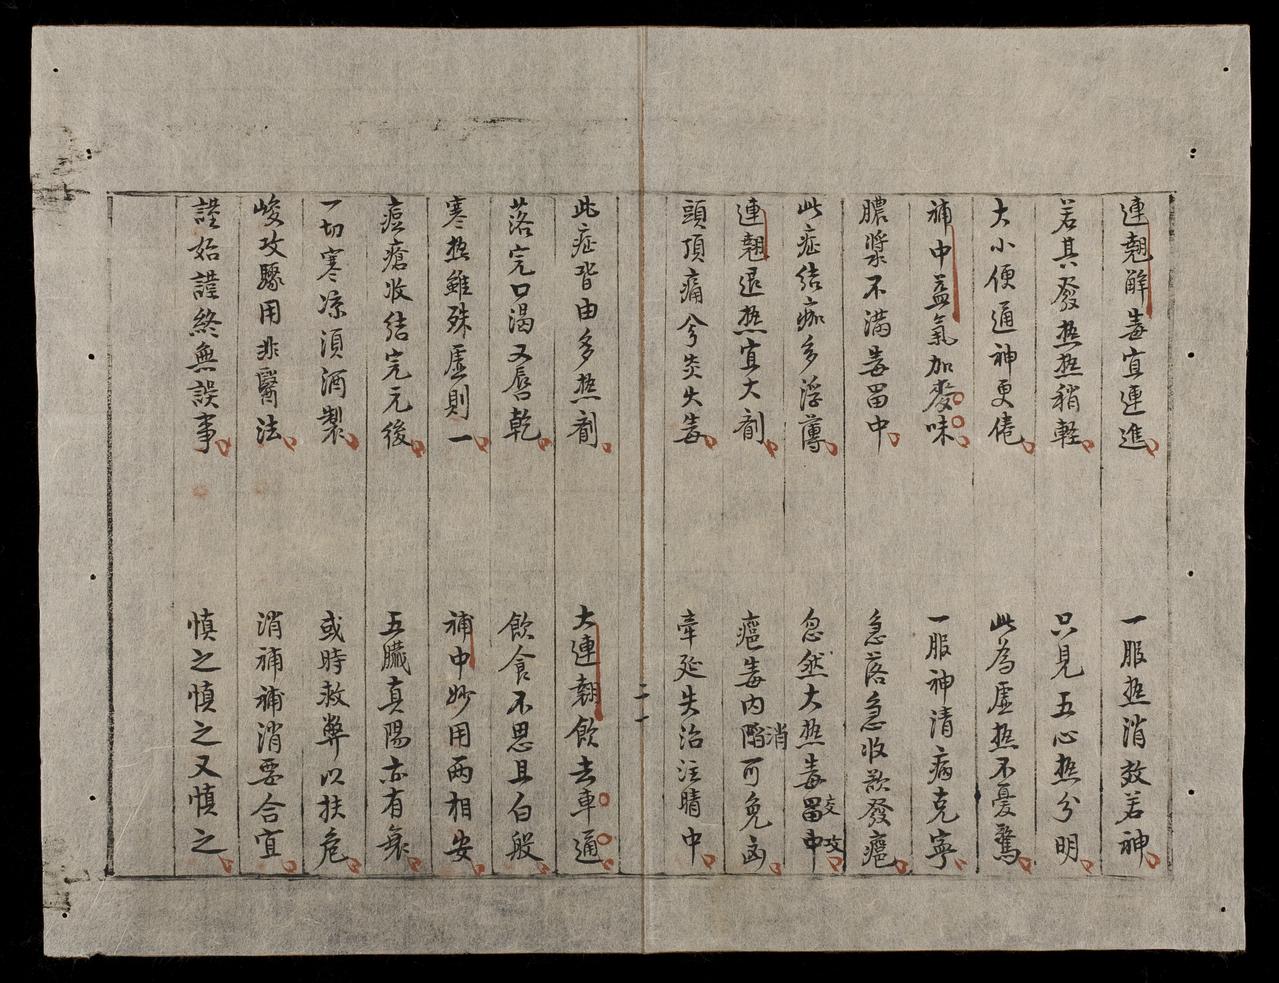 連翹解毒宜連進 一服热消效若神
若其發热热稍軽 只見五心热分明
大小便通神更倦 此為虚热不憂驚
補中益氣加麥味 一服神清病克寧
膿漿不滿毒畱中 急落急收欲發瘪
此症结痂多浮薄 忽然大热毒畱中
交攻
連翹退热宜大劑 瘪毒内陷可免凶
消
頭頂痛兮炎失毒 牽延失治注睛中
二一
此症皆由多热劑 大連翹飲去車通
落完口渴又唇乾 飲食不思且白般
寒热雖殊虚則一 補中妙用两相安
痘瘡收结完元後 五臟真陽亦有衰
一切寒凉須酒製 或時救弊以扶危
峻攻驟用非醫法 消補補消要合宜
謹始謹終無誤事 慎之慎之又慎之